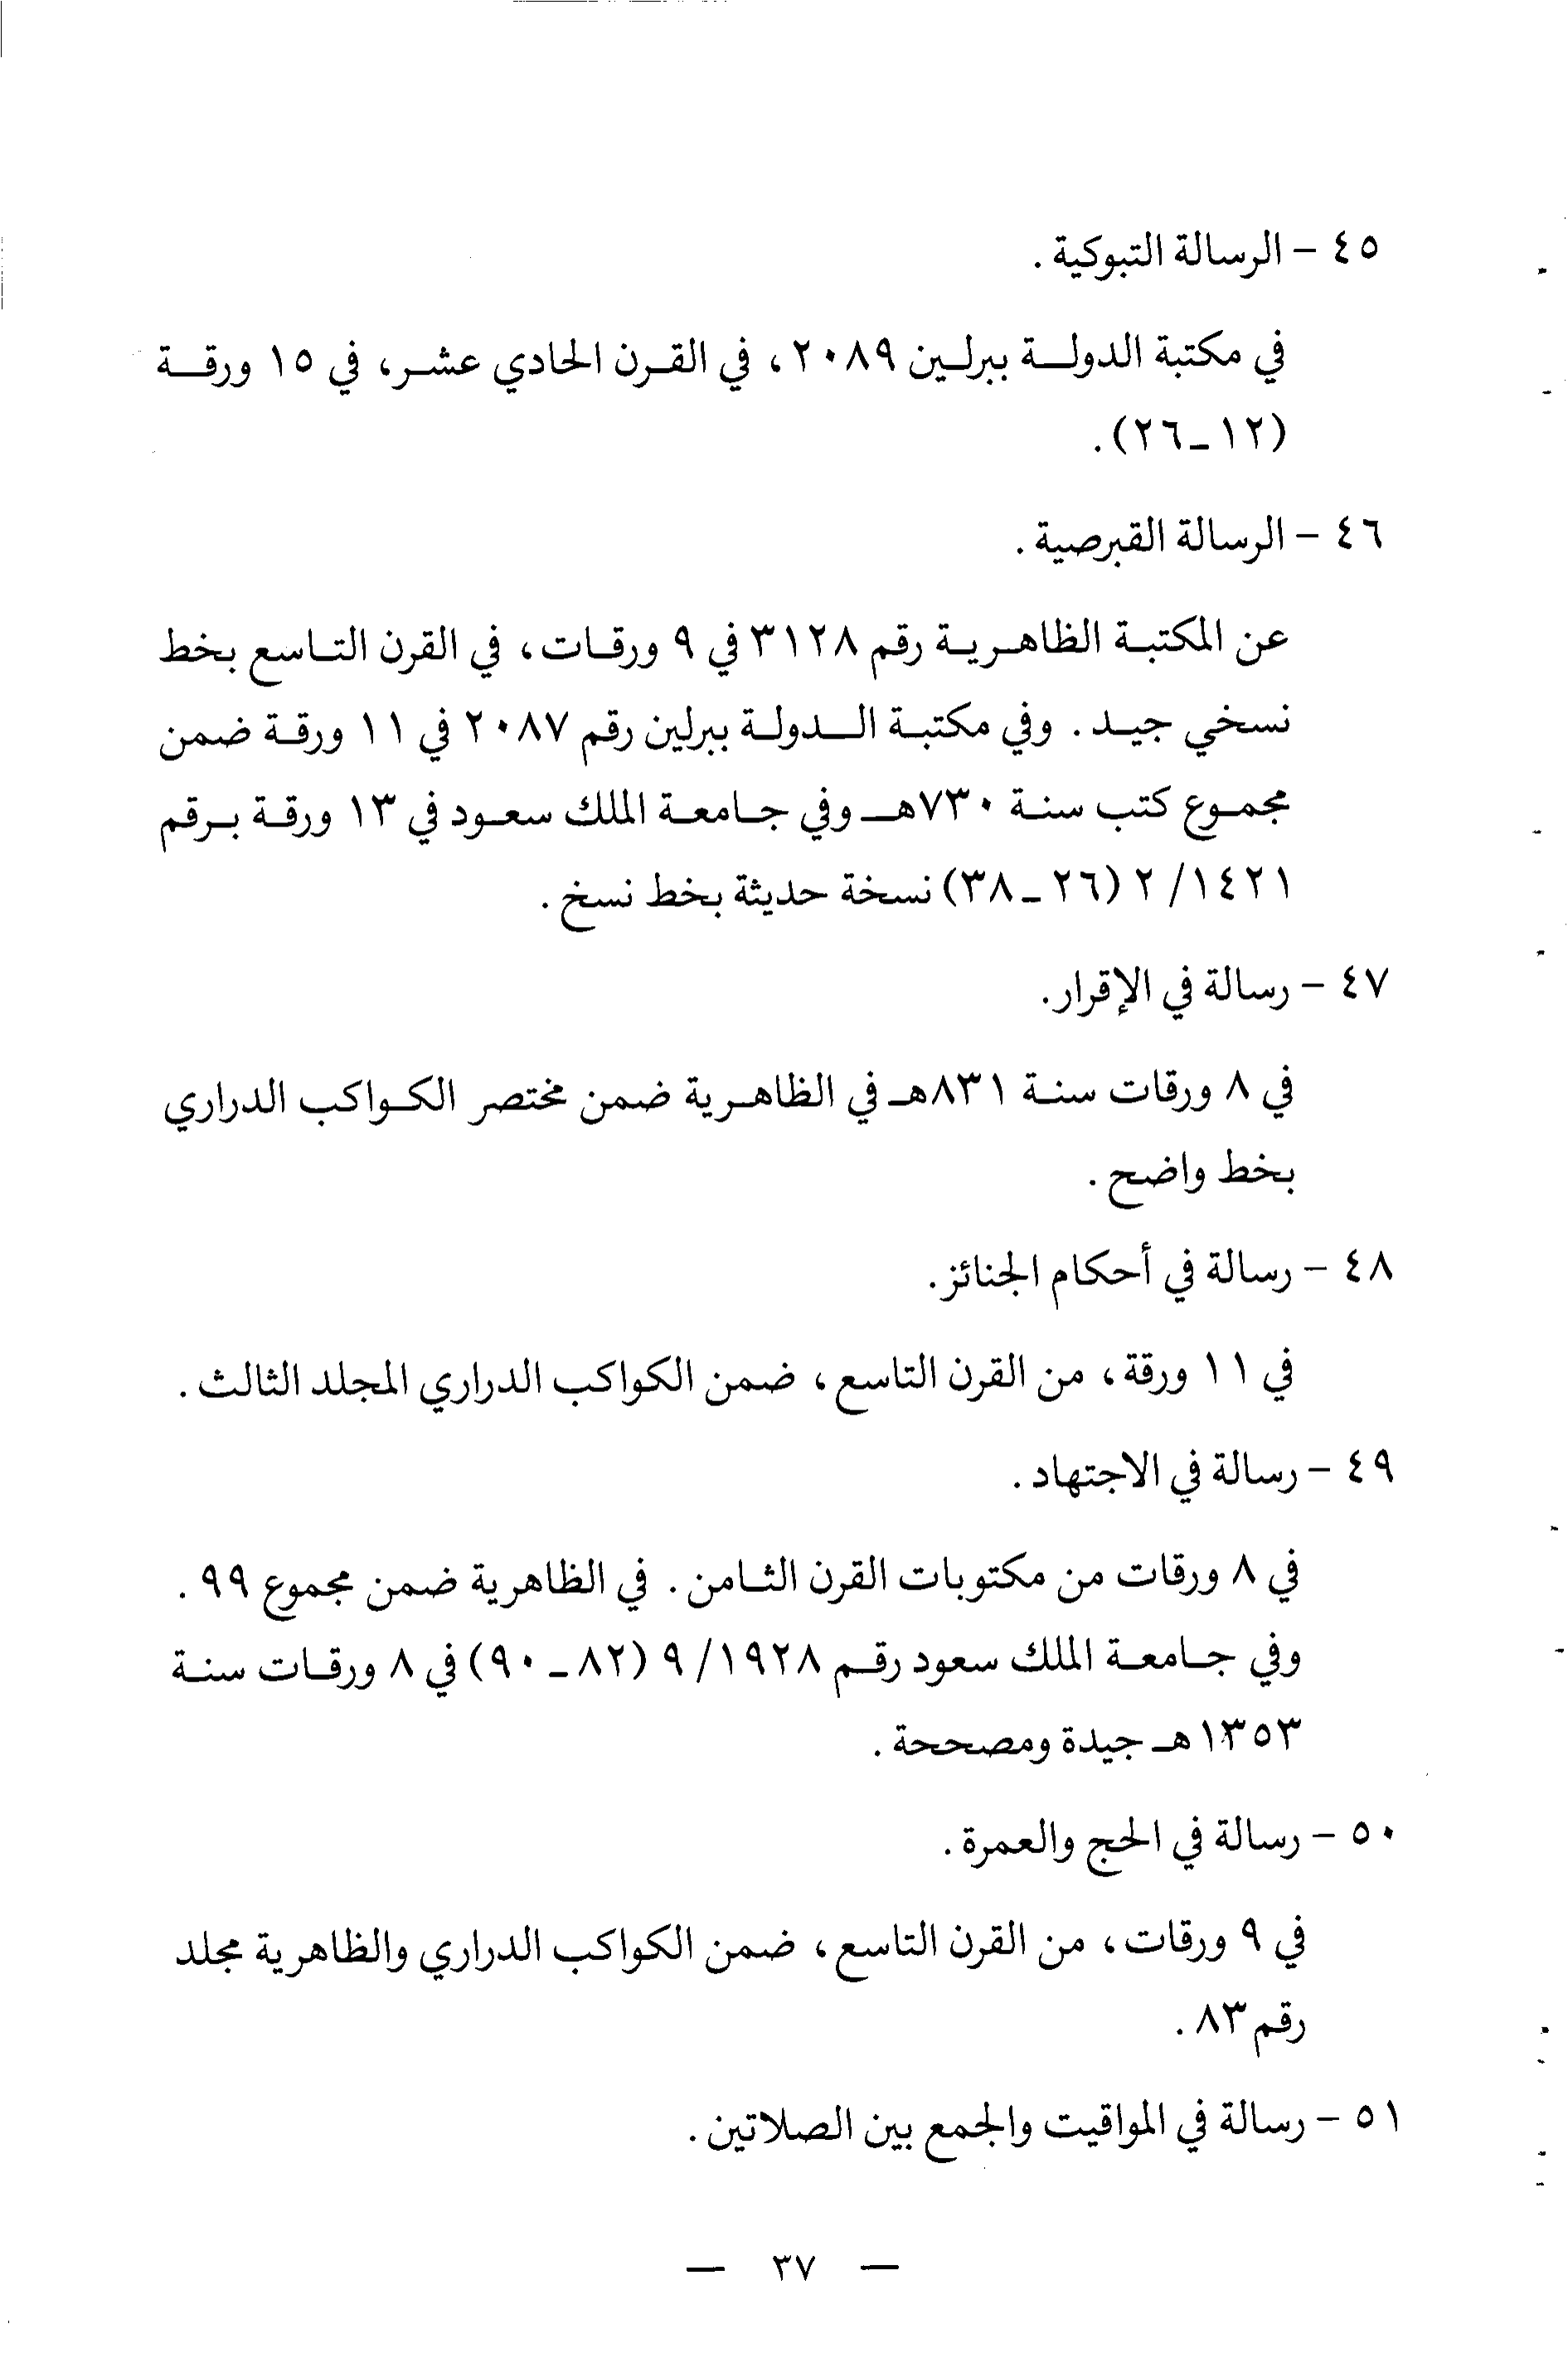 ٤٥ - الرسالة التبوكية .
في مكتبة الدولة ببرلين ٢٠٨٩ ، في القرن الحادي عشر، في ١٥ ورقة
(١٢ـ٢٦) .
٤٦ - الرسالة القبرصية .
عن المكتبة الظاهرية رقم ٣١٢٨ في ٩ ورقات ، في القرن التاسع بخط
نسخي جيد . وفي مكتبة الدولة ببرلين رقم ٢٠٨٧ في ١١ ورقة ضمن
مجموع كتب سنة ٧٣٠هـ وفي جامعة الملك سعود في ١٣ ورقة برقم
١٤٢١/ ٢ (٢٦ـ ٣٨) نسخة حديثة بخط نسخ .
٤٧ - رسالة في الإقرار.
في ٨ ورقات سنة ٨٣١هـ في الظاهرية ضمن مختصر الكواكب الدراري
بخط واضح .
٤٨ - رسالة في أحكام الجنائز.
في ١١ ورقة ، من القرن التاسع ، ضمن الكواكب الدراري المجلد الثالث .
٤٩ - رسالة في الاجتهاد .
في ٨ ورقات من مكتوبات القرن الثامن . في الظاهرية ضمن مجموع ٩٩ .
وفي جامعة الملك سعود رقم ١٩٢٨/ ٩ (٨٢ ـ ٩٠) في ٨ ورقات سنة
١٣٥٣هـ جيدة ومصححة .
٥٠ - رسالة في الحج والعمرة .
في ٩ ورقات ، من القرن التاسع ، ضمن الكواكب الدراري والظاهرية مجلد
رقم ٨٣ .
٥١ - رسالة في المواقيت والجمع بين الصلاتين .
— ٣٧ —